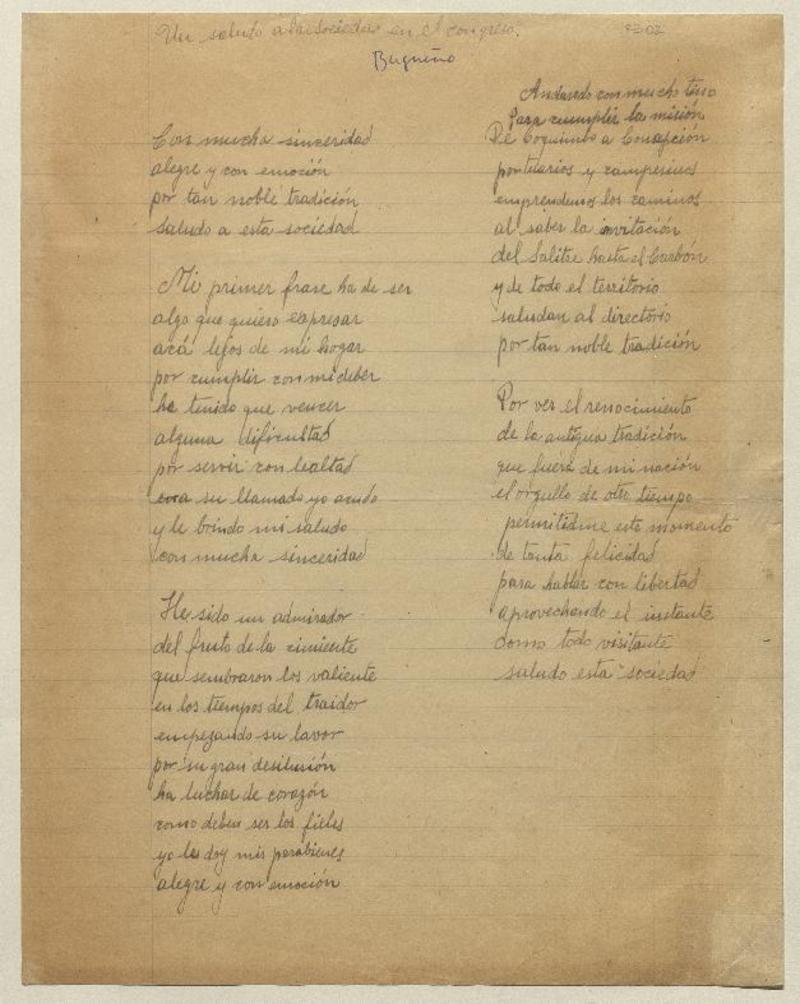 Un saludo a la Sociedad en el congreso.
Bugueño
Con mucha sinceridad
alegre y con emoción
por tan noble tradición
saludo a esta sociedad
Mi primer frase ha de ser
algo que quiero expresar
acá lejos de mi hogar
por cumplir con mi deber
he tenido que vencer
alguna dificultad
por servir con lealtad
a su llamado yo acudo
y le brindo mi saludo
con mucha sinceridad
He sido un admirador
del fruto de la cimiente
que sembraron los valiente
en los tiempos del traidor
empezando su lavor
por su gran desilusión
ha luchar de corazón
como deben ser los fieles
yo les doy mis parabienes
alegre y con emoción
Andando con mucho tino
para cumplir la misión
De Coquimbo a Concepción
portuarios y campesinos
emprendemos los caminos
al saber la invitación
del Salitre hasta el Carbón
y de todo el territorio
saludan al directorio
por tan noble tradición
Por ver el renocimiento
de la antigua tradición
que fuera de mi nación
el orgullo de otro tiempo
permitidme este momento
de tanta felicidad
para hablar con libertad
aprovechando el instante
como todo visitante
saludo esta sociedad